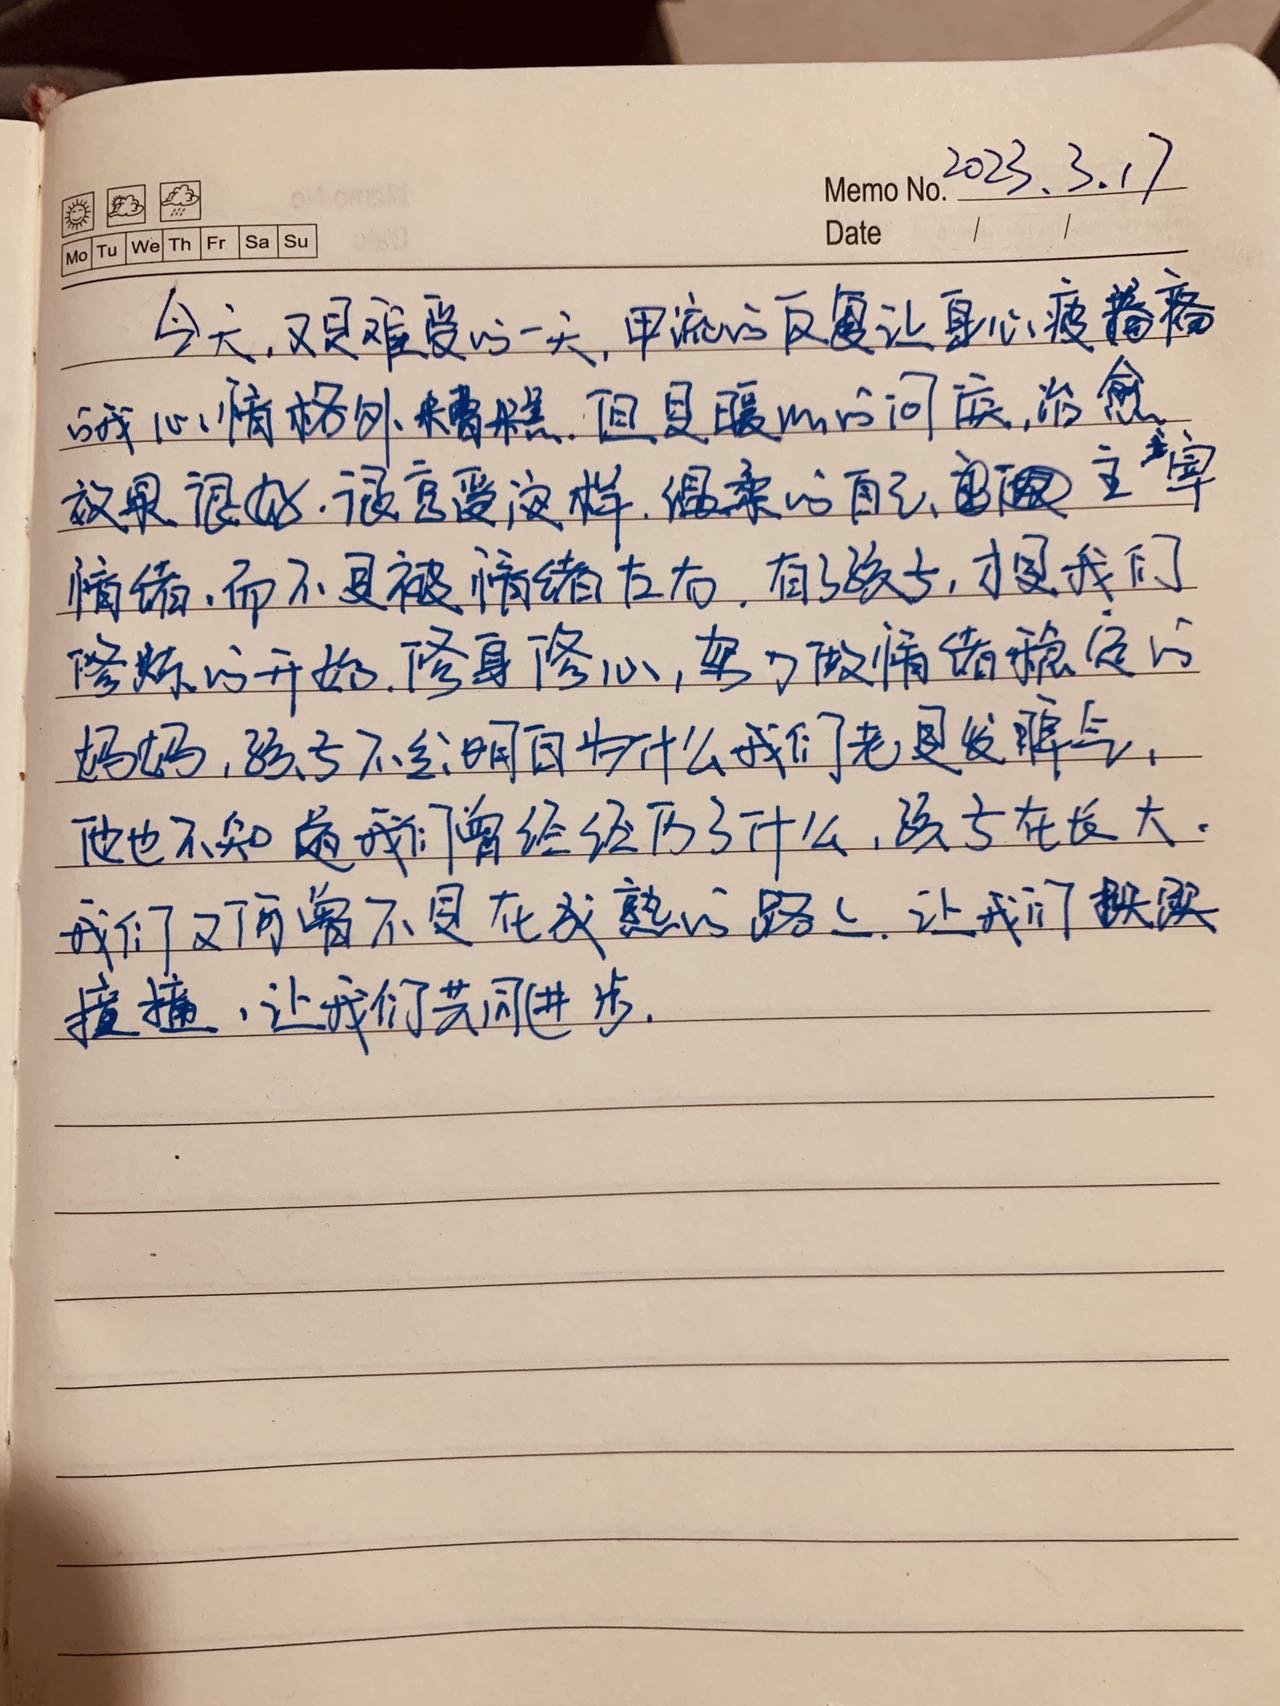 2023.3.17
Memo No.
Mo Tu We Th Fr Sa Su
Date / /
今天,又是难受的一天,甲流的反复让身心疲
的我心情格外糟糕.但是暖心的问候,治愈
效果很好.很享受这样.温柔的自己、主宰
情绪.而不是被情绪左右.有了孩子,才是我们
修炼的开始.修身修心,努力做情绪稳定的
妈妈,孩子不会明白为什么我们老是发脾气,
他也不知道我们曾经经历了什么,孩子在长大.
我们又何尝不是在成熟的路上.让我们
,让我们共同进步.